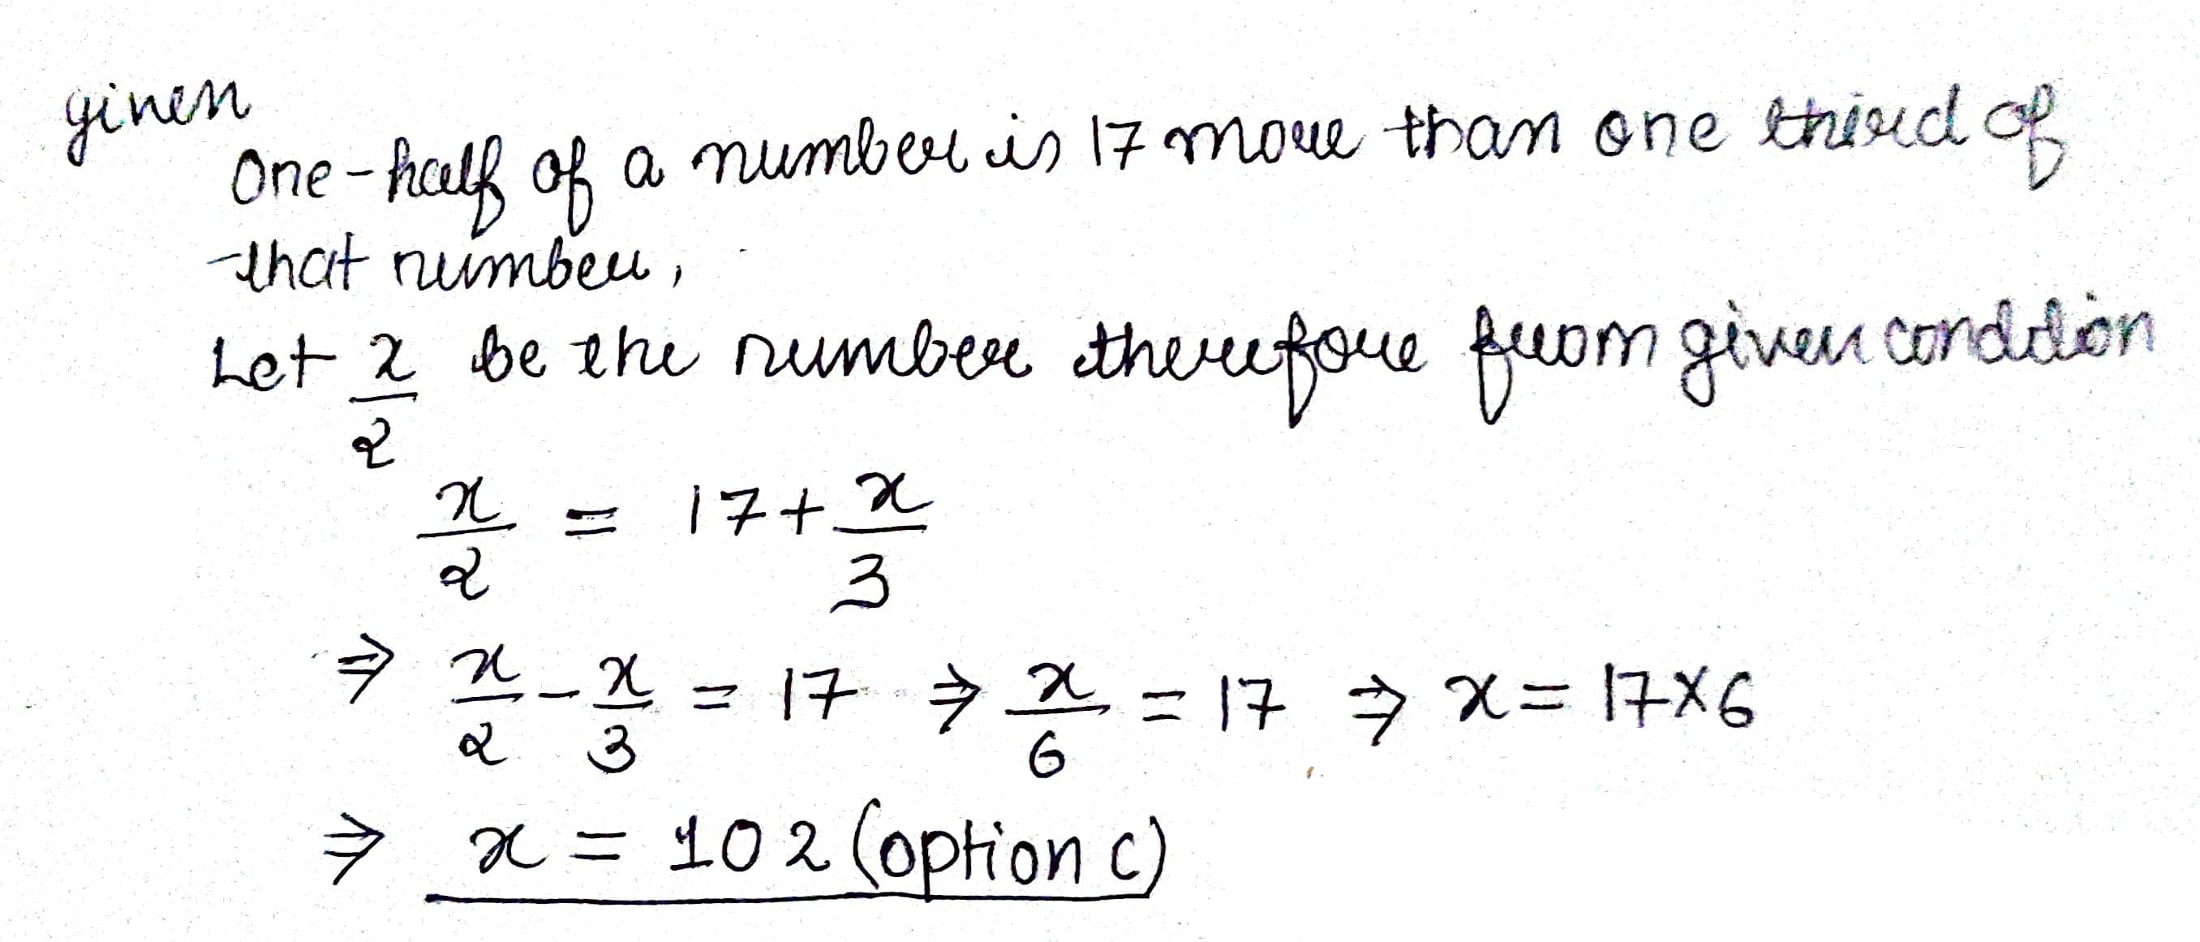 given
One-half of a number is 17 more than one third of
that number,
Let x/2 be the number therefore from given condition
x/2 = 17 + x/3
⇒ x/2 - x/3 = 17 ⇒ x/6 = 17 ⇒ x = 17×6
⇒ x = 102 (option c)